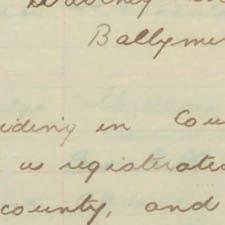 Ballyme
iding in Cou
is registerated
county, and